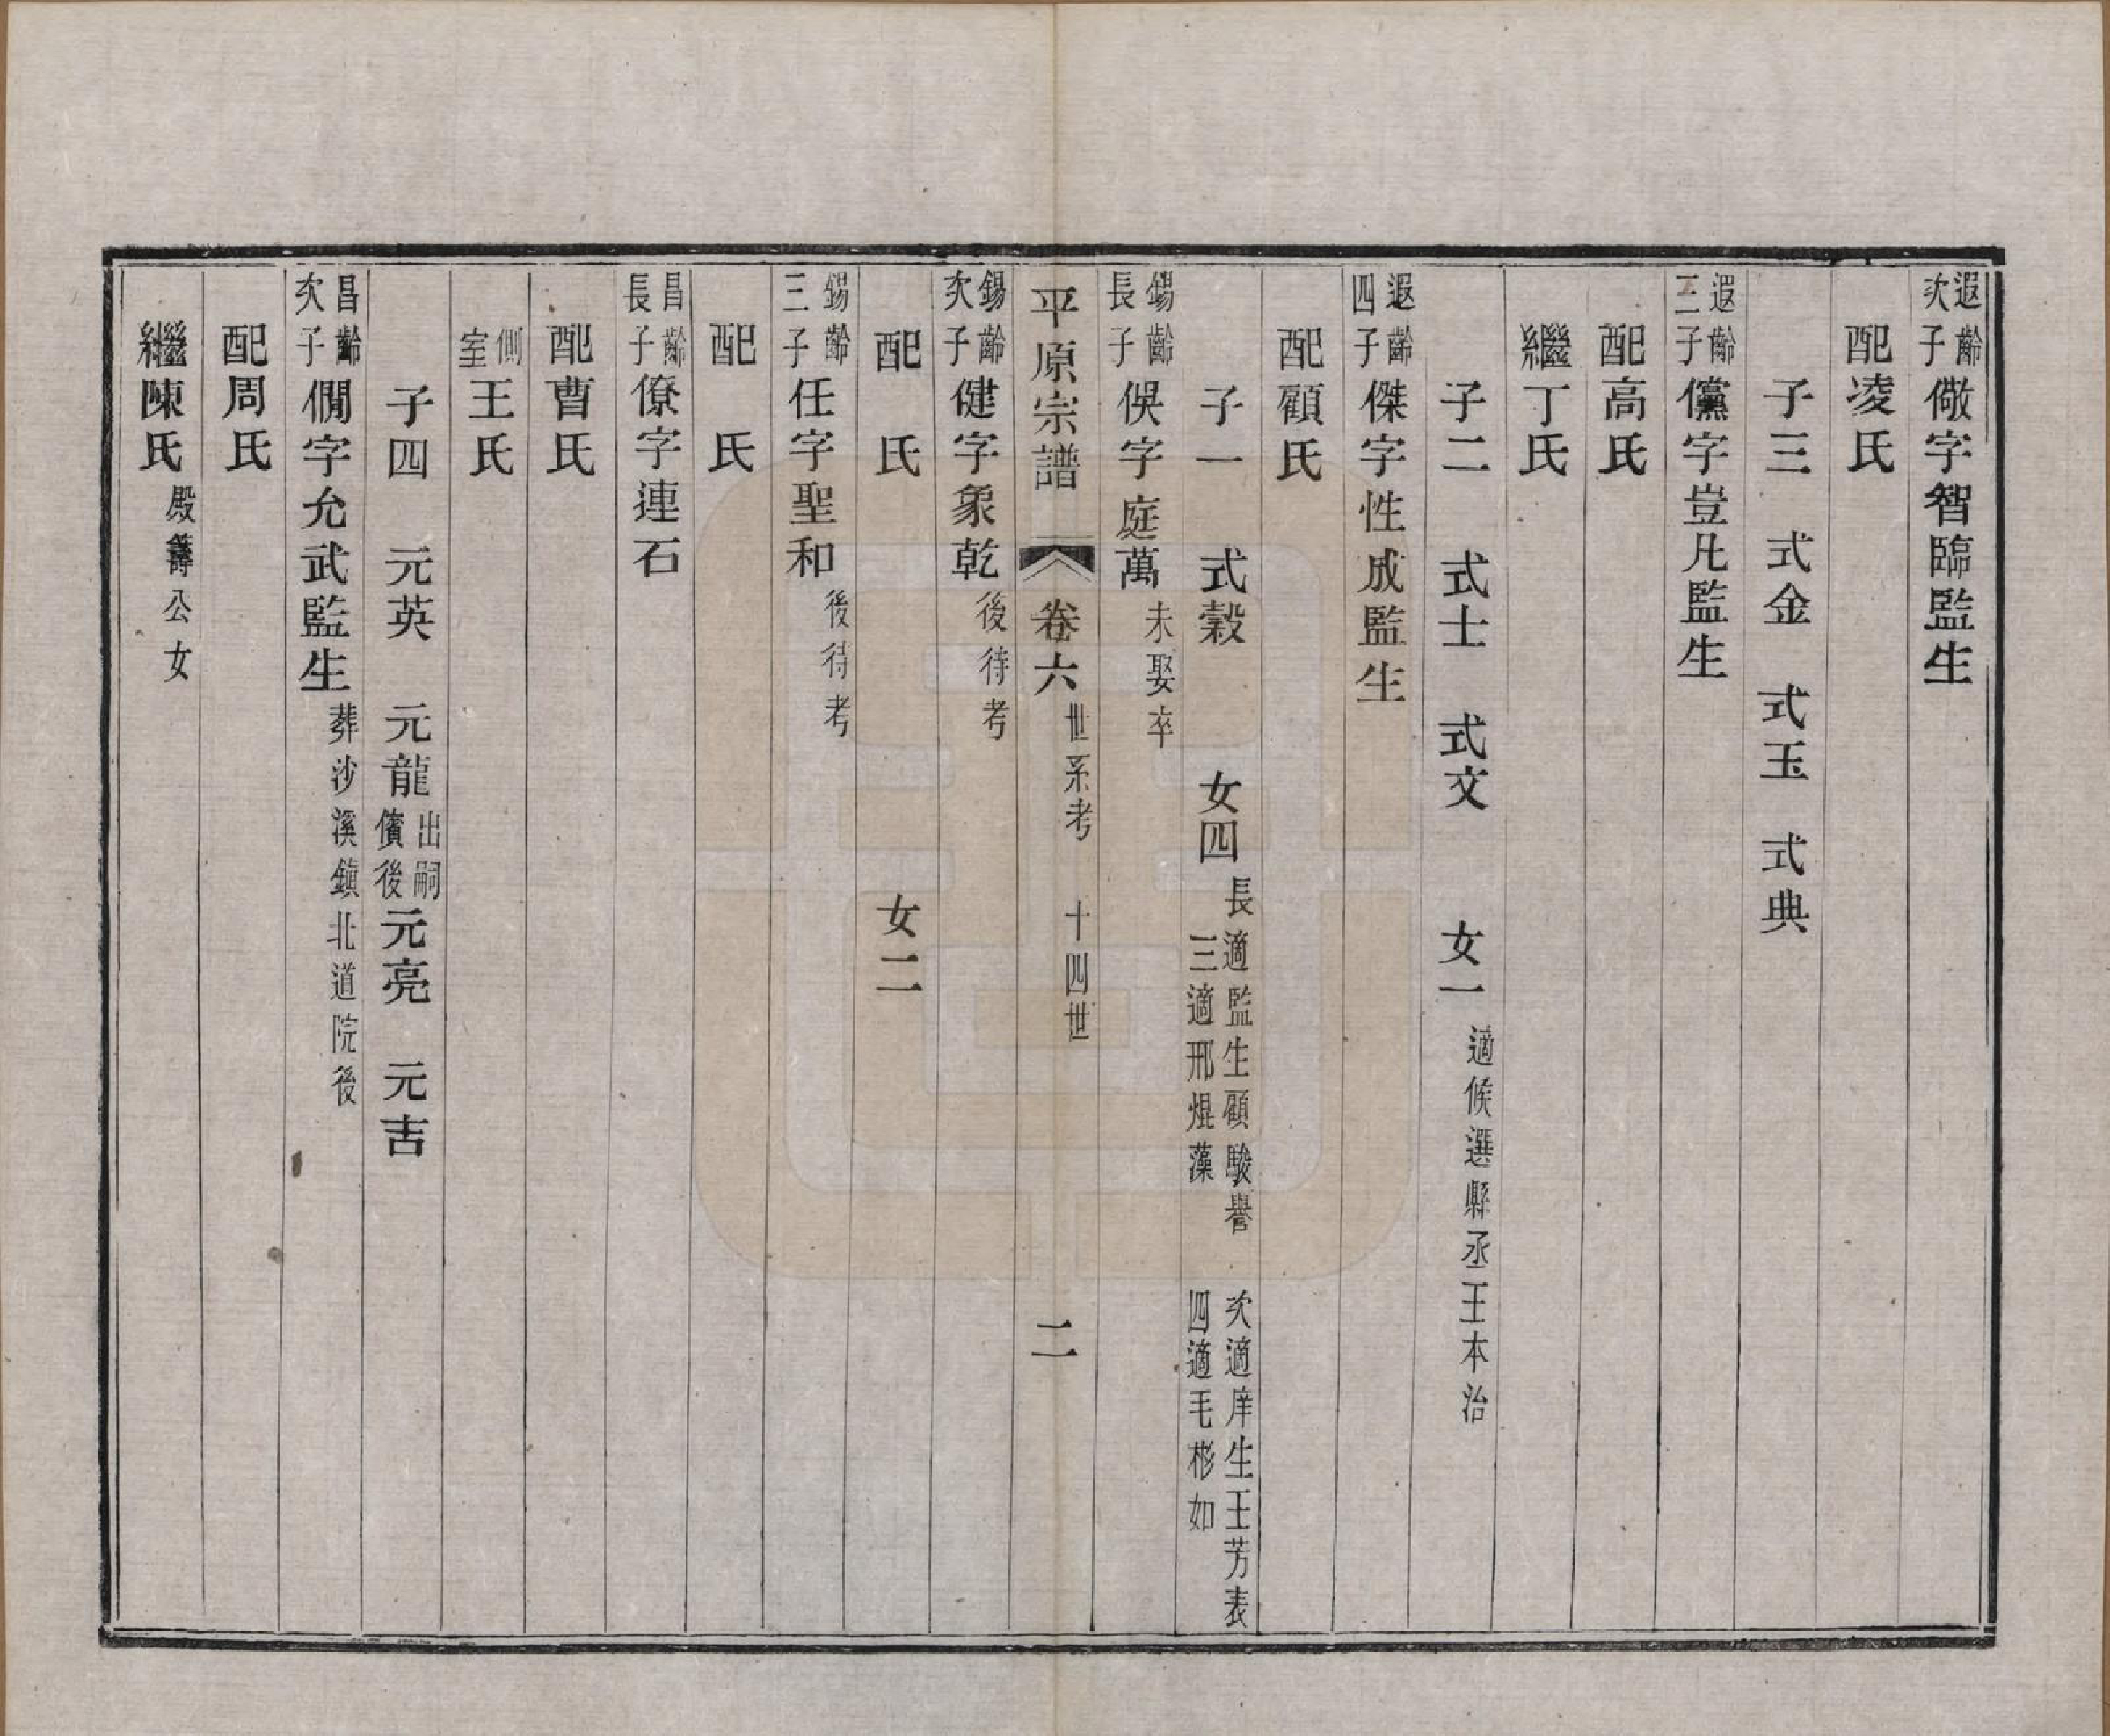 遐齡次子儆字智臨監生
配凌氏
子三 式金 式玉 式典
遐齡三子儻字豈凡監生
配高氏
繼丁氏
子二 式士 式文 女一適候選縣丞王本治
遐齡四子傑字性成監生
配顧氏
子一 式穀 女四長適監生顧駿譽 次適庠生王芳表 三適邢焜藻 四適毛彬如
錫齡長子俁字庭萬未娶卒
平原宗譜 卷六 世系考 十四世 二
錫齡次子健字象乾後待考
配 氏 女二
錫齡三子任字聖和後待考
配 氏
昌齡長子僚字連石
配曹氏
側室王氏
子四 元英 元龍出嗣儐後 元亮 元吉
昌齡次子僩字允武監生葬沙溪鎮北道院後
配周氏
繼陳氏殿籌公女